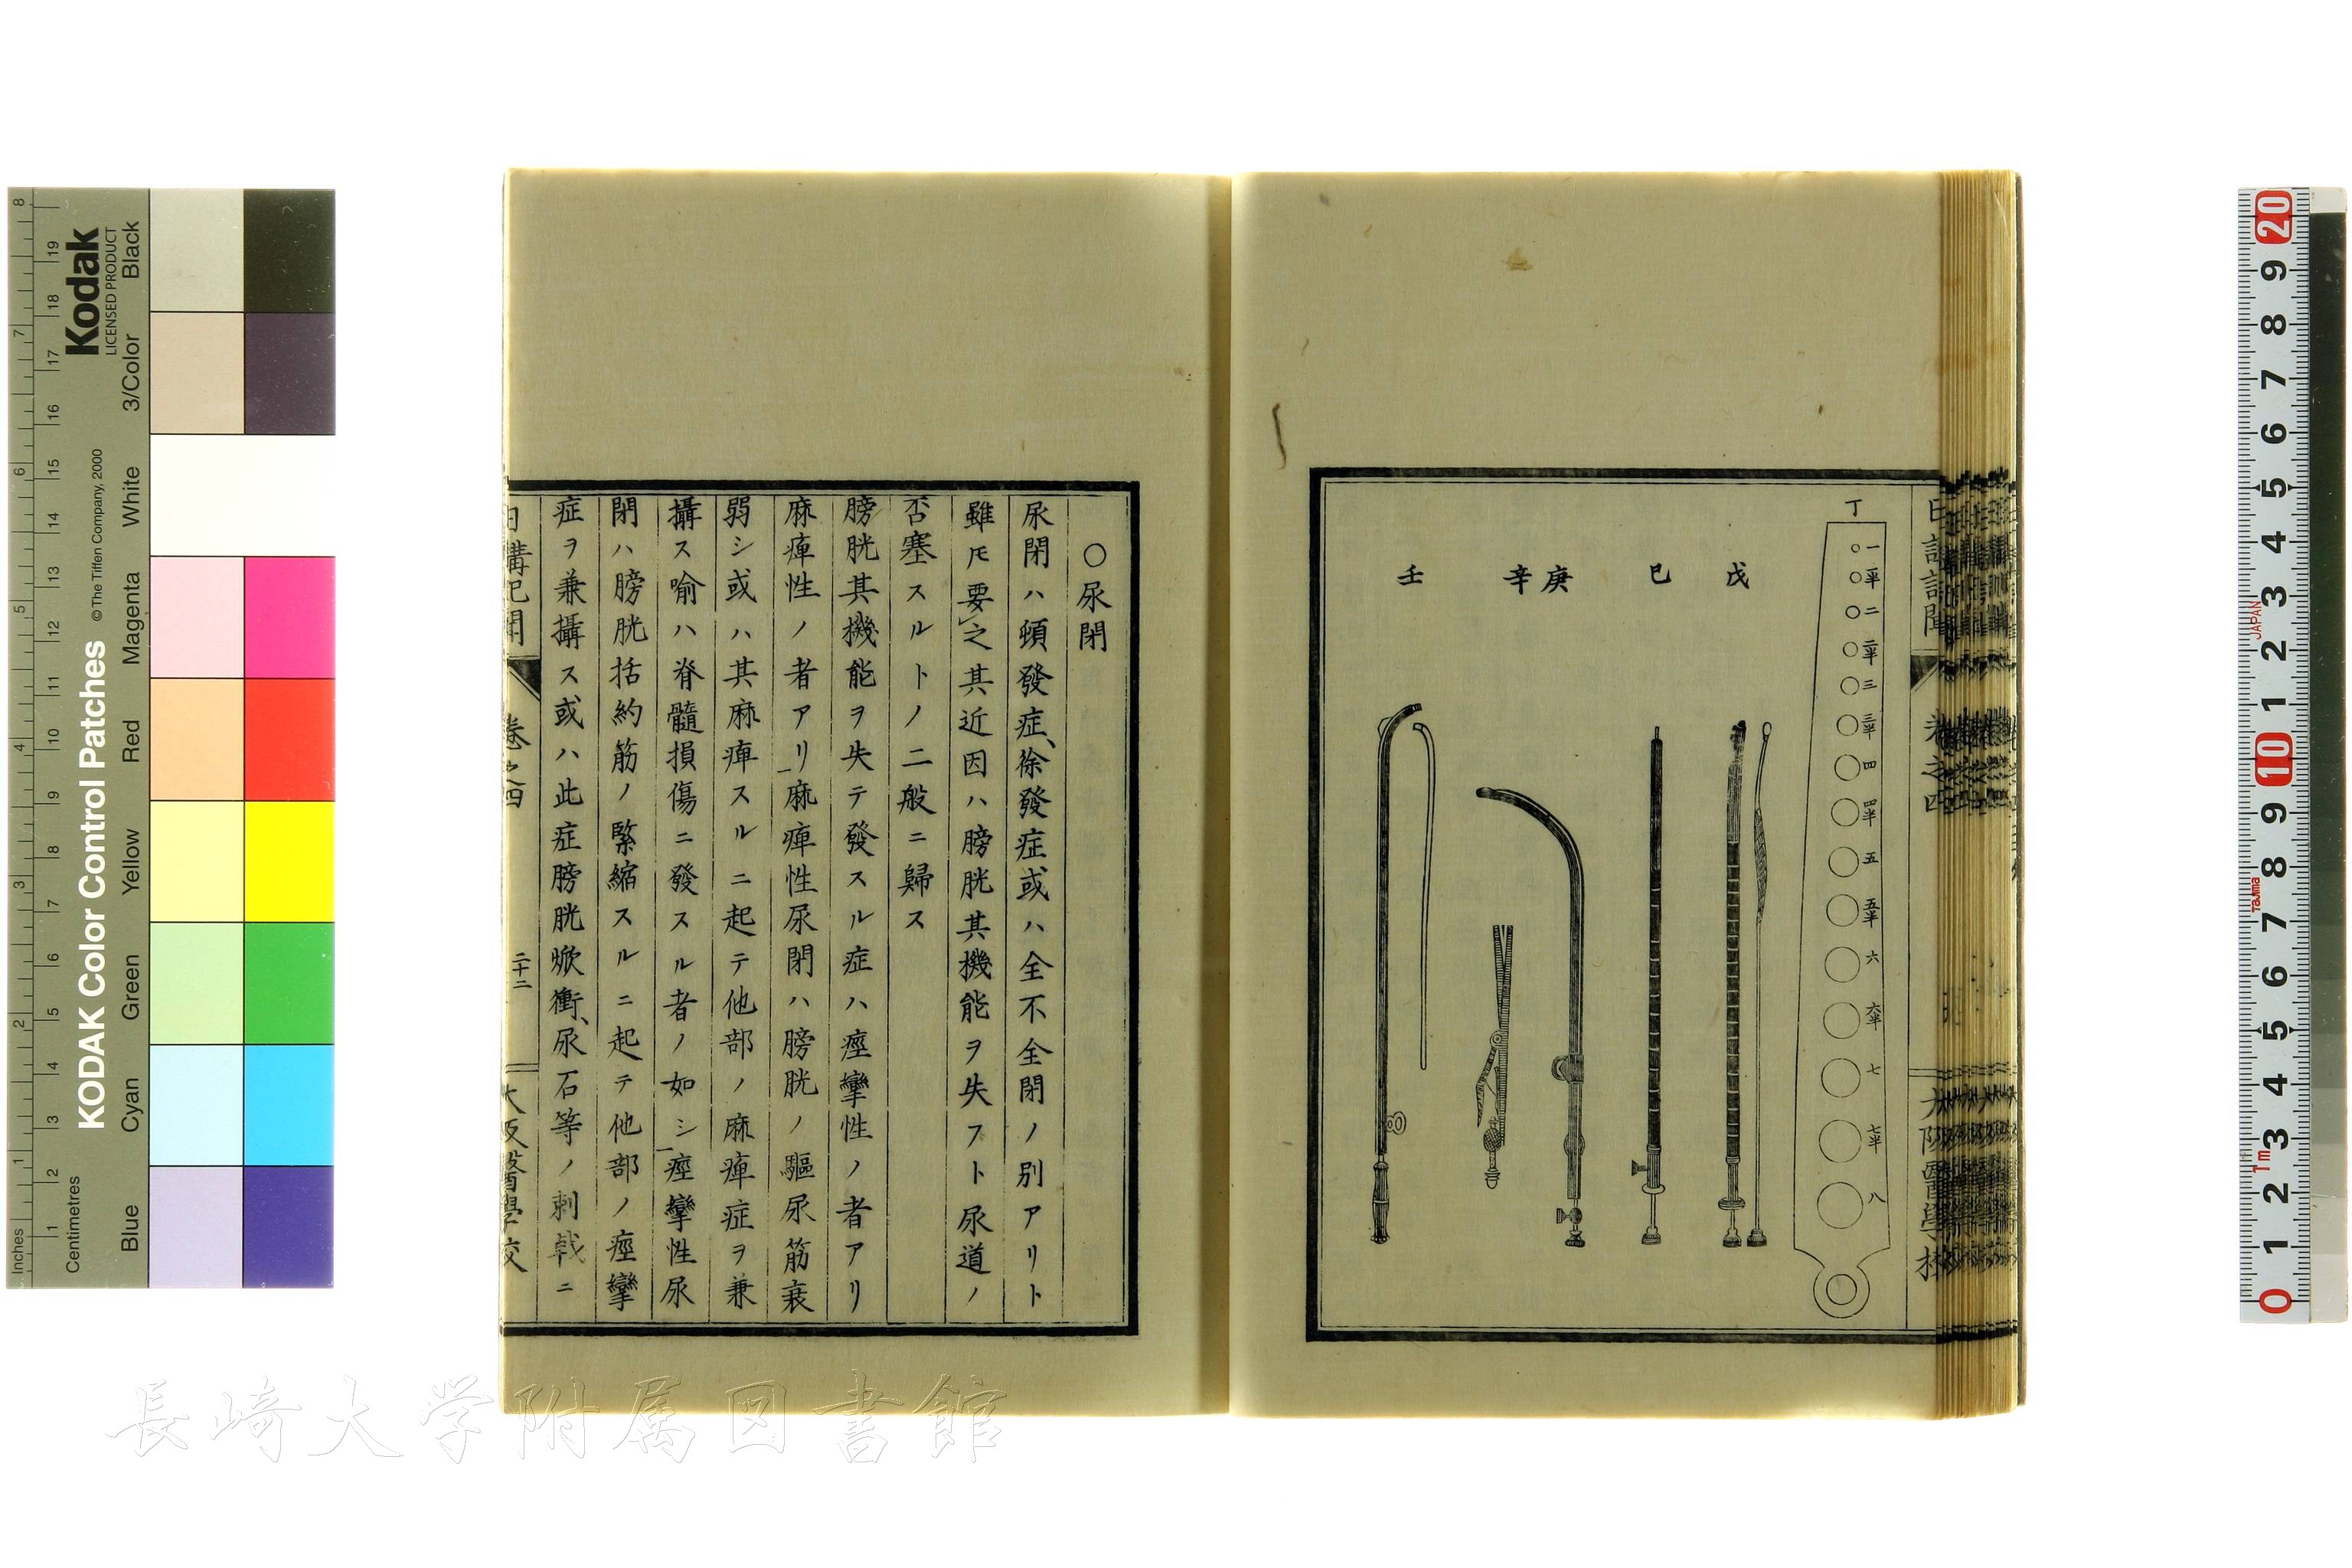 日講記聞 卷之四 大阪醫學校
丁
一
一半
二
二半
三
三半
四
四半
五
五半
六
六半
七
七半
八
戊
巳
庚
辛
壬
○尿閉
尿閉ハ頓發症、徐發症或ハ全不全閉ノ別アリト
雖𪜈要之其近因ハ膀胱其機能ヲ失フト尿道ノ
否塞スルトノ二般ニ歸ス
膀胱其機能ヲ失テ發スル症ハ痙攣性ノ者アリ
麻痺性ノ者アリ麻痺性尿閉ハ膀胱ノ驅尿筋衰
弱シ或ハ其麻痺スルニ起テ他部ノ麻痺症ヲ兼
攝ス喩ハ脊髓損傷ニ發スル者ノ如シ痙攣性尿
閉ハ膀胱括約筋ノ緊縮スルニ起テ他部ノ痙攣
症ヲ兼攝ス或ハ此症膀胱焮衝、尿石等ノ刺戟ニ
日講記聞 卷之四 二十二 大阪醫學校
KODAK Color Control Patches
©The Tiffen Company, 2000
Kodak
LICENSED PRODUCT
Inches
1 2 3 4 5 6 7 8
Centimetres
1 2 3 4 5 6 7 8 9 10 11 12 13 14 15 16 17 18 19
Blue
Cyan
Green
Yellow
Red
Magenta
White
3/Color
Black
0 1 2 3 4 5 6 7 8 9 10 1 2 3 4 5 6 7 8 9 20
1m
Tajima
JAPAN
長崎大学附属図書館